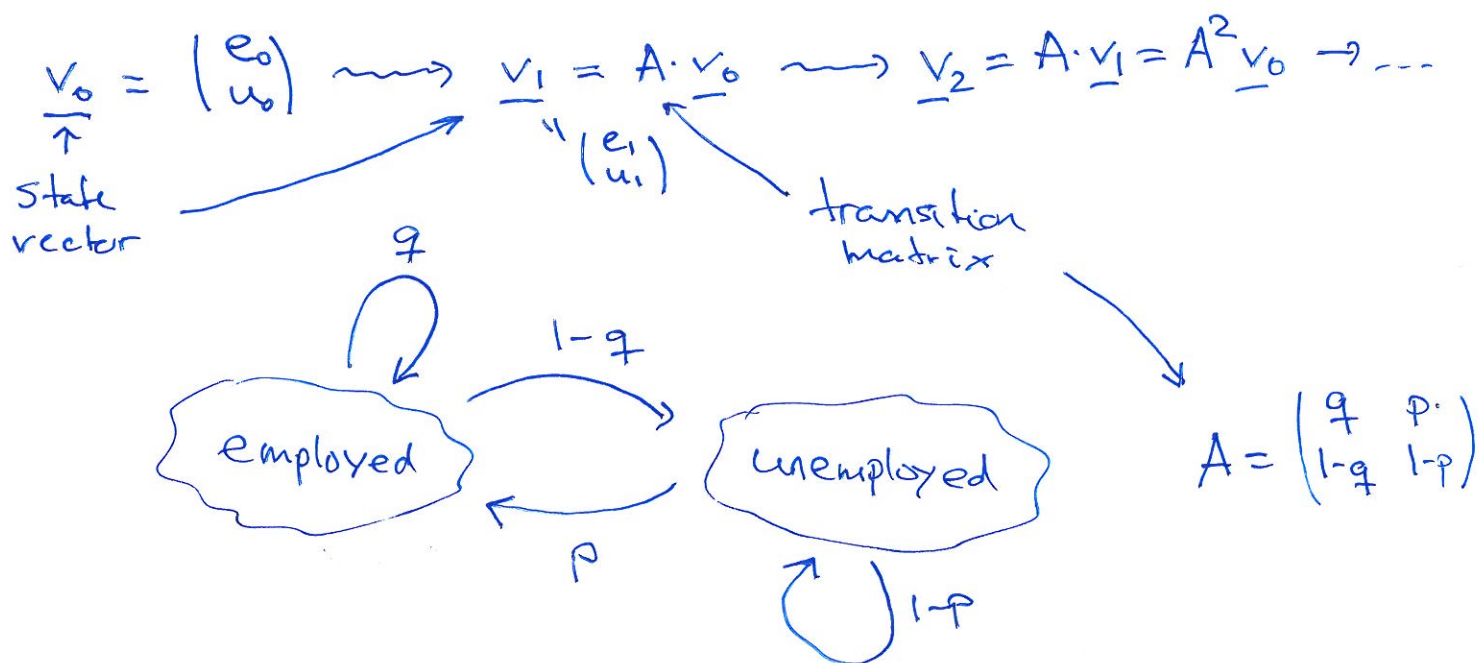 v₀ = (e₀ u₀) ⟿ v₁ = A · v₀ ⟿ v₂ = A · v₁ = A² v₀ → ...
↑ " (e₁ u₁)
state vector
transition matrix
q
1-q
employed
unemployed
A = (q p. 1-q 1-p)
p
1-p